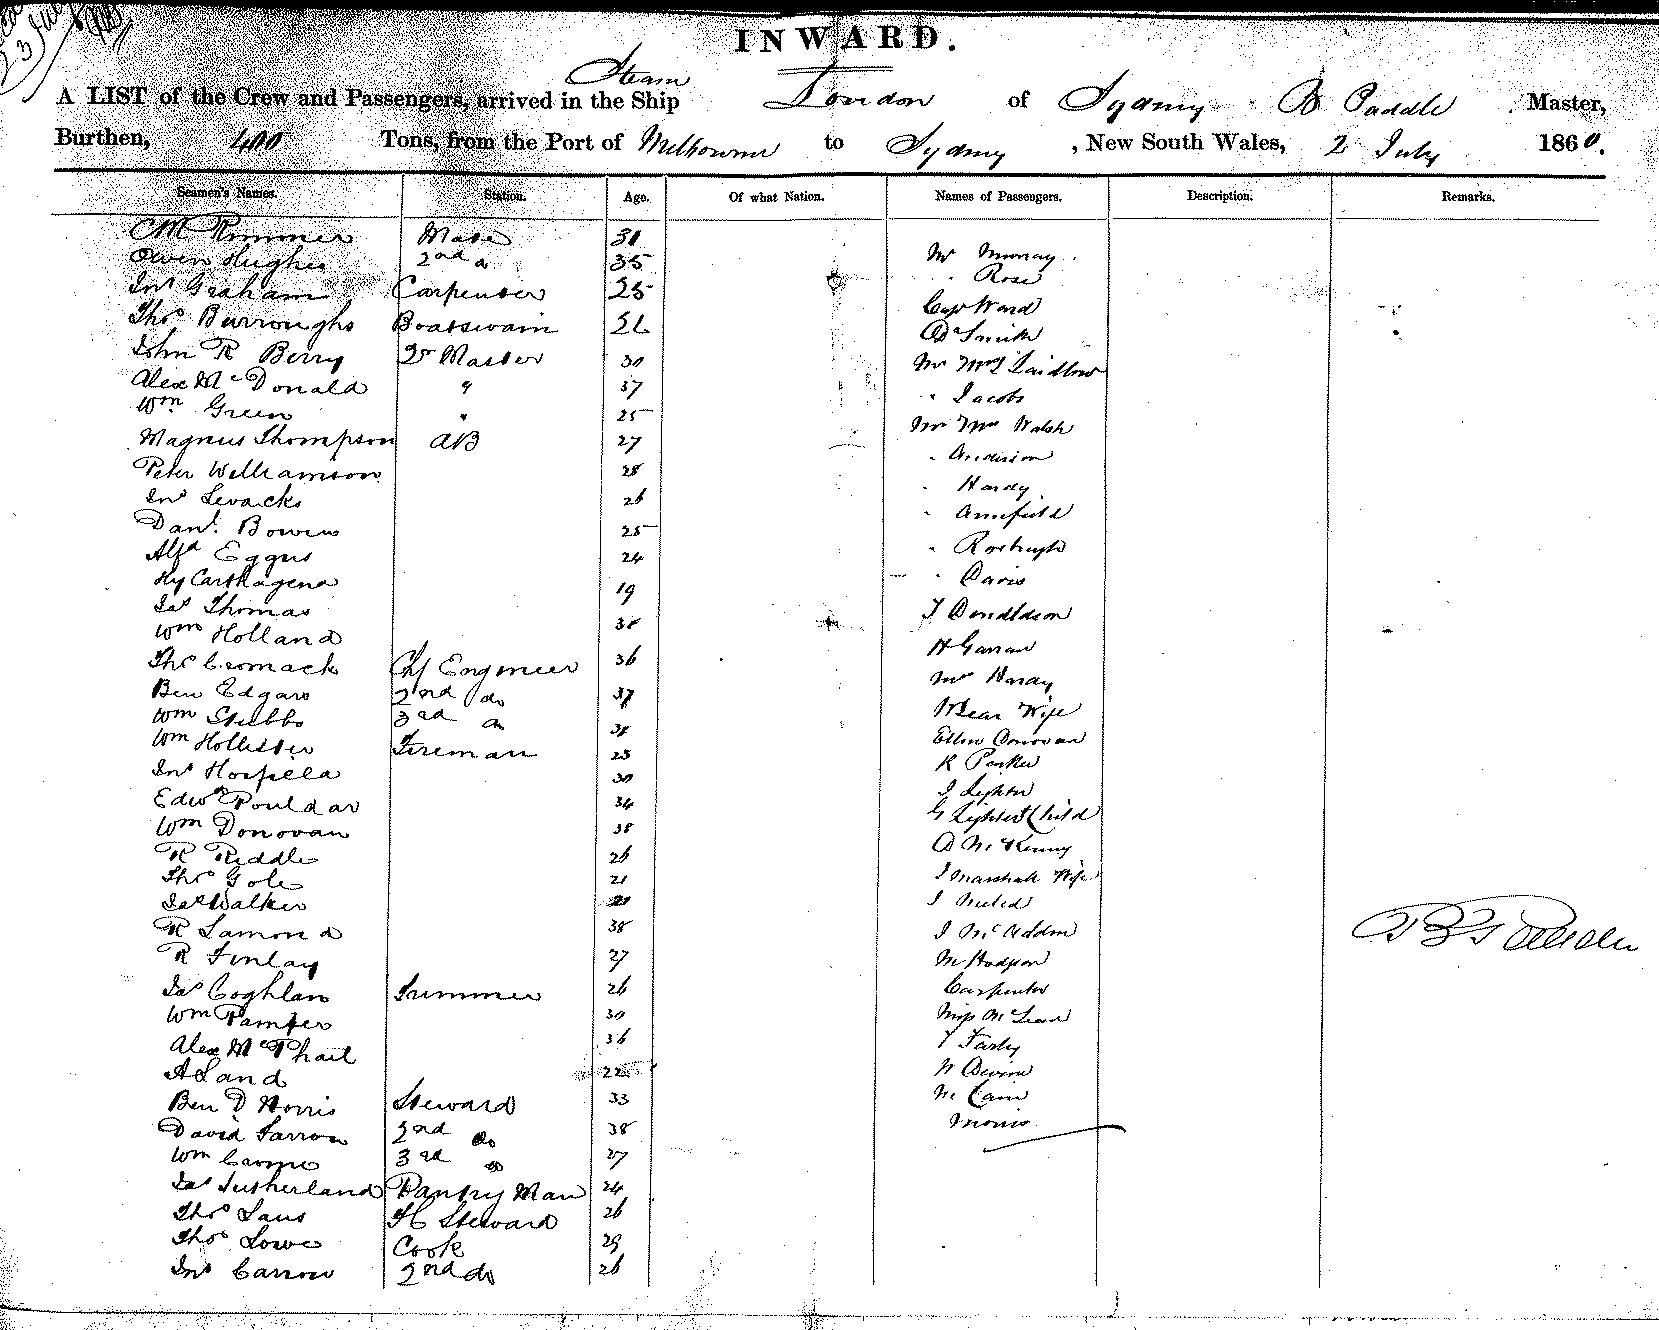 INWARD.
Steam
A LIST of the Crew and Passengers, arrived in the Ship London of Sydney B Paddle Master,
Burthen, 400 Tons, from the Port of Melbourne to Sydney, New South Wales, 2 July 1860.
Seamen's Names. Station. Age. Of what Nation. Names of Passengers. Description. Remarks.
CM Rimmer Mate 31
Owen Hughes 2nd do 35 Mr Murray
Jno Graham Carpenter 25 " Rose
Thos Burroughs Boatswain Capt Ward
John R Berry Qr Master 30 Dr Smith
Alex McDonald " 37 Mr Mrs Laidlow
Wm Green " 25 " Jacobs
Magnus Thompson AB 27 Mr Mrs Walsh
Peter Williamson 28 " Anderson
Jno Levacks 26 " Hardy
Danl. Bowen 25 " Armfield
Alfd Eggus 24 " Roxburgh
Hy Carthagena 19 " Davis
Jas Thomas 38 J Donaldson
Wm Holland H Garran
Thos Cromack Chf Engineer 36 Mrs Hardy
Ben Edgars 2nd do 37 Wife
Wm Stubbs 3rd do 38 Ellen Donovan
Wm Hollister Fireman 25 R Parker
Jno Horfiela 30 J Lighter
Edwd Pouldar 34 G Lighter Child
Wm Donovan 38 D McKenny
R Riddle 26 J Marshall Wife
Thos Gole 21 J
Jas Walker 21 J McAddm
R Lamond 38 M Hodgson
R Finlay 27 Carpenter
Jas Coghlan Trimmer 26 Miss McLean
Wm Pamfer 30 T Farly
Alex McPhail 36 W Devine
A Land 22 M Cain
Ben D Norris Steward 33 Morris
David Farrow 2nd do 38
Wm Carne 3rd do 27
Jas Sutherland Pantry Man 24
Thos Laws FC Steward 26
Thos Lowe Cook 29
Jno Carrow 2nd do 26